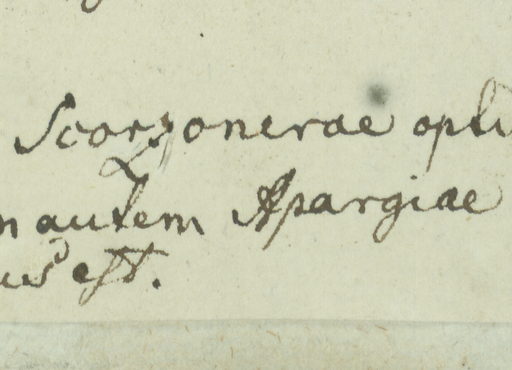 Scorzonerae opti
n autem Apargiae
us est.